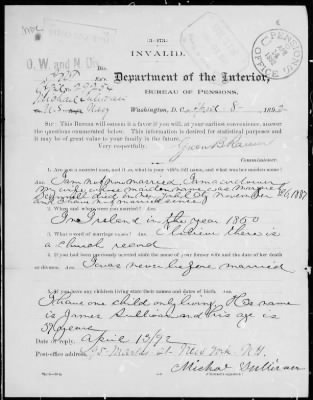 (3-173.)
INVALID.
O. W. and N. Div.
Department of the Interior,
BUREAU OF PENSIONS,
Michael Sullivan
U.S. Navy
Washington, D. C., April 8, 1892
SIR: This Bureau will esteem it a favor if you will, at your earliest convenience, answer
the questions enumerated below. This information is desired for statistical purposes and
it may be of great value to your family in the future.
Very respectfully,
Green B Raum
Commissioner.
1. Are you a married man, and, if so, what is your wife's full name, and what was her maiden name?
Ans. I am not now married, I am a widower
My wife whose maiden name was Margaret
died in New York City November 26, 1887
married since
2. When and where were you married?
In Ireland in the year 1850
3. What record of marriage exists? Ans. I believe there is
a church record
4. If you had been previously married state the name of your former wife and the date of her death
or divorce. Ans. I was never before married
5. If you have any children living state their names and dates of birth. Ans.
I have one child only living. His name
is James Sullivan and his age is
Date of reply, April 13/92
Post-office address, 95 Market St. New York. N.Y.
Michael Sullivan